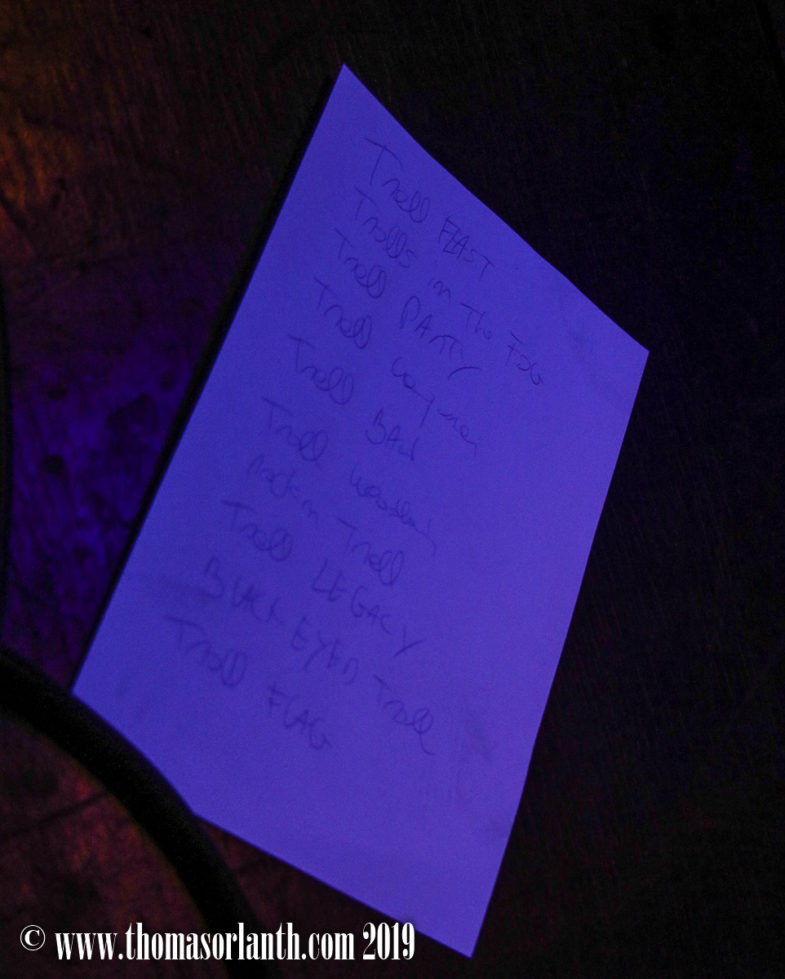 Troll FEAST
Trolls in The FOG
Troll PARTY
Troll
Troll BALL
Troll
Rock'n Troll
Troll LEGACY
BLACK EYED Troll
Troll FLAG
© www.thomasorlanth.com 2019